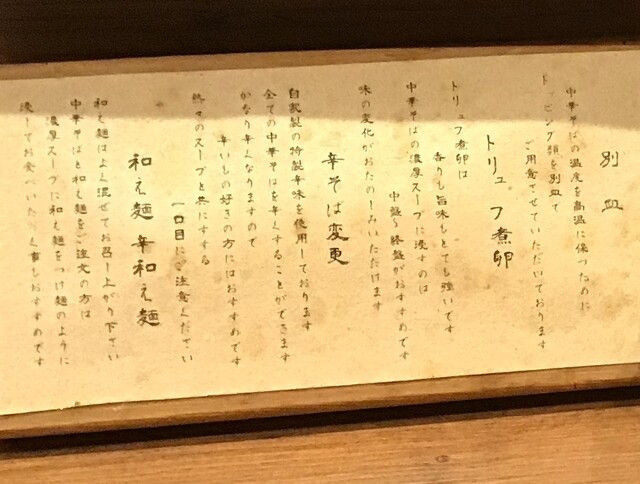 別皿
中華そばの温度を高温に保つために
トッピング類を別皿で
ご用意させていただいております
トリュフ煮卵
トリュフ煮卵は
香りも旨味もとても強いです
中華そばの濃厚スープに浸すのは
中盤～終盤がおすすめです
味の変化がおたのしみいただけます
辛そば変更
自家製の特製辛味を使用しております
全ての中華そばを辛くすることができます
かなり辛くなりますので
辛いもの好きの方にはおすすめです
熱々のスープと共にすする
一口目にご注意ください
和え麺 辛和え麺
和え麺はよく混ぜてお召し上がり下さい
中華そばと和え麺をご注文の方は
濃厚スープに和え麺をつけ麺のように
浸してお食べいただく事もおすすめです